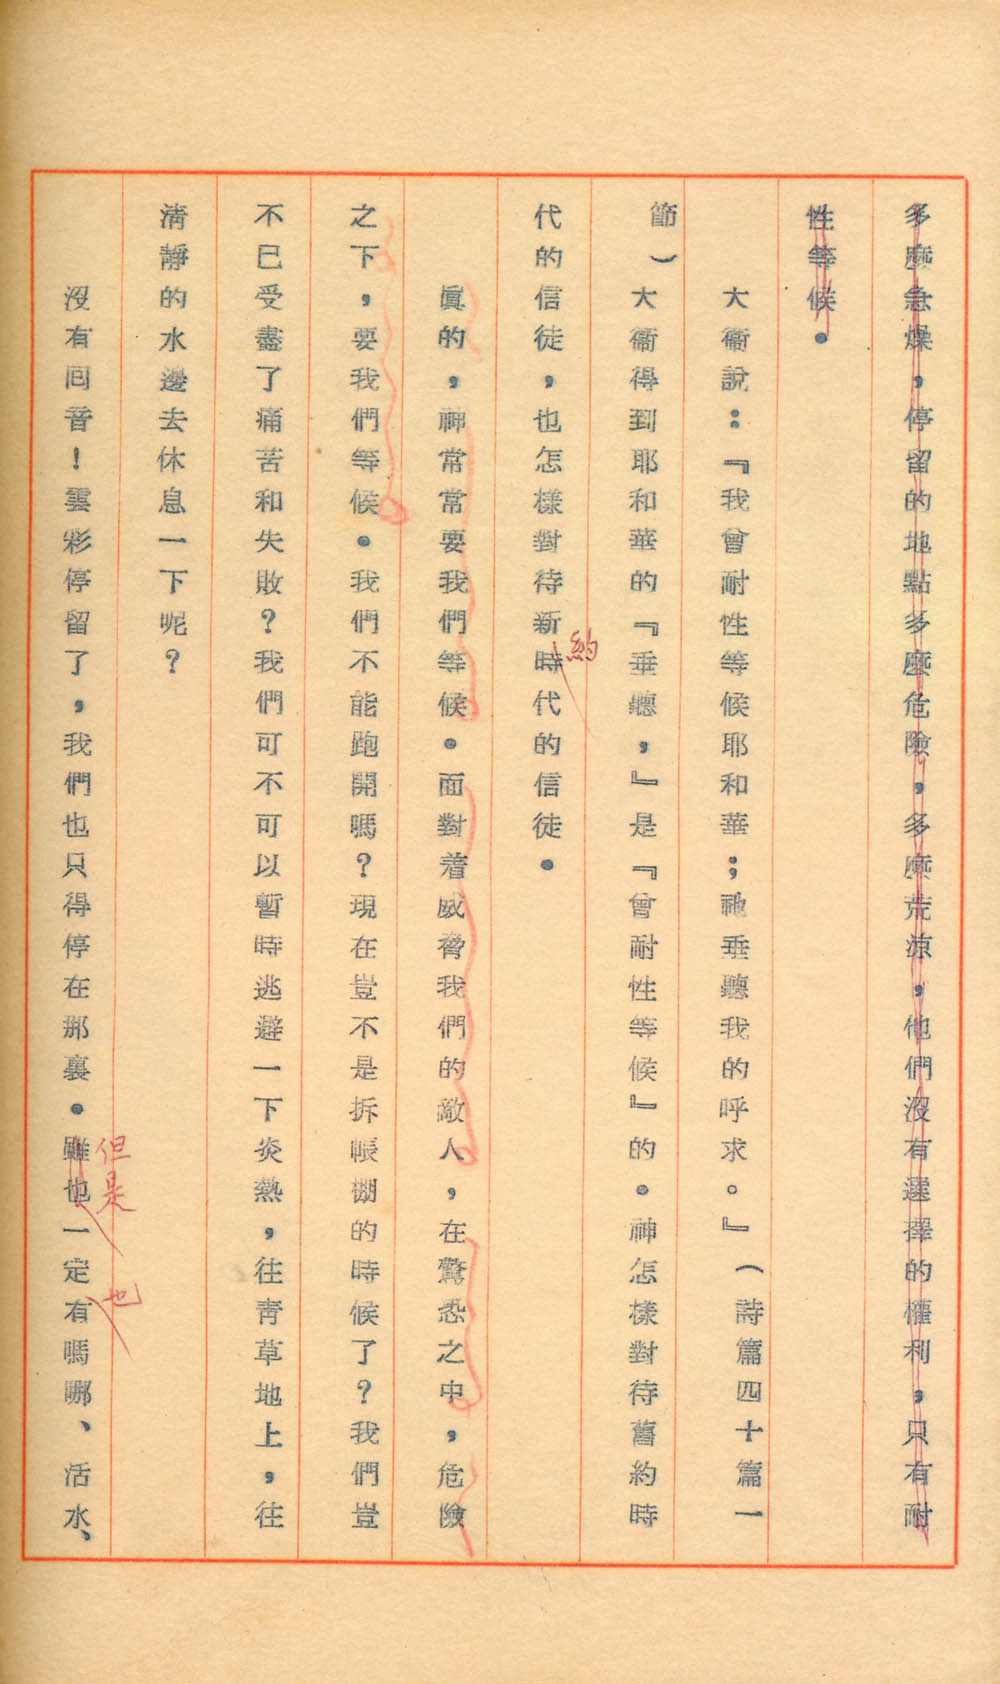 多麽急燥，停留的地點多麽危險，多麽荒涼，他們沒有選擇的權利，只有耐
性等候。
大衞說：『我曾耐性等候耶和華；祂垂聽我的呼求。』（詩篇四十篇一
節）大衞得到耶和華的『垂聽，』是『曾耐性等候』的。神怎樣對待舊約時
代的信徒，也怎樣對待新時代的信徒。
約
眞的，神常常要我們等候。面對着威脅我們的敵人，在驚恐之中，危險
之下，要我們等候。我們不能跑開嗎？現在豈不是拆帳棚的時候了？我們豈
不已受盡了痛苦和失敗？我們可不可以暫時逃避一下炎熱，往靑草地上，往
淸靜的水邊去休息一下呢？
沒有回音！雲彩停留了，我們也只得停在那裏。雖也一定有嗎哪、活水、
但是
也